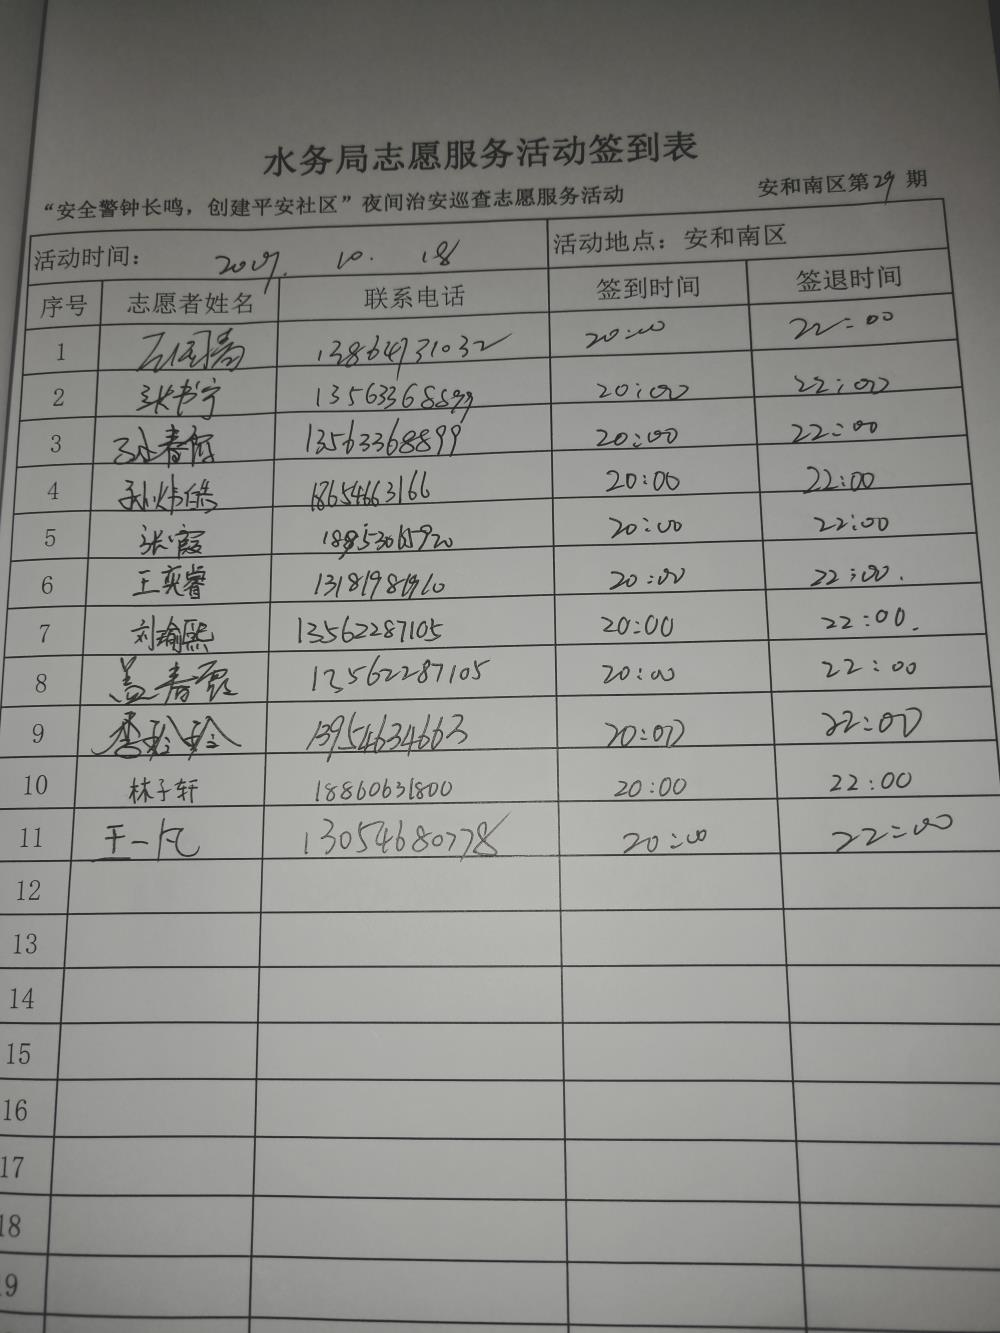 水务局志愿服务活动签到表
“安全警钟长鸣，创建平安社区”夜间治安巡查志愿服务活动 安和南区第29期
活动时间： 2019. 10. 18 活动地点：安和南区
序号 志愿者姓名 联系电话 签到时间 签退时间
1 13864731032 20:00 22:00
2 张书宁 13563368899 20:00 22:00
3 13563368899 20:00 22:00
4 18654663166 20:00 22:00
5 张霞 20:00 22:00
6 王奕睿 13181981910 20:00 22:00.
7 刘瑜熙 13562287105 20:00 22:00.
8 盖春霞 13562287105 20:00 22:00
9 李玲玲 13954634663 20:00 22:00
10 林子轩 18860631800 20:00 22:00
11 王一凡 13054680778 20:00 22:00
12
13
14
15
16
17
18
19